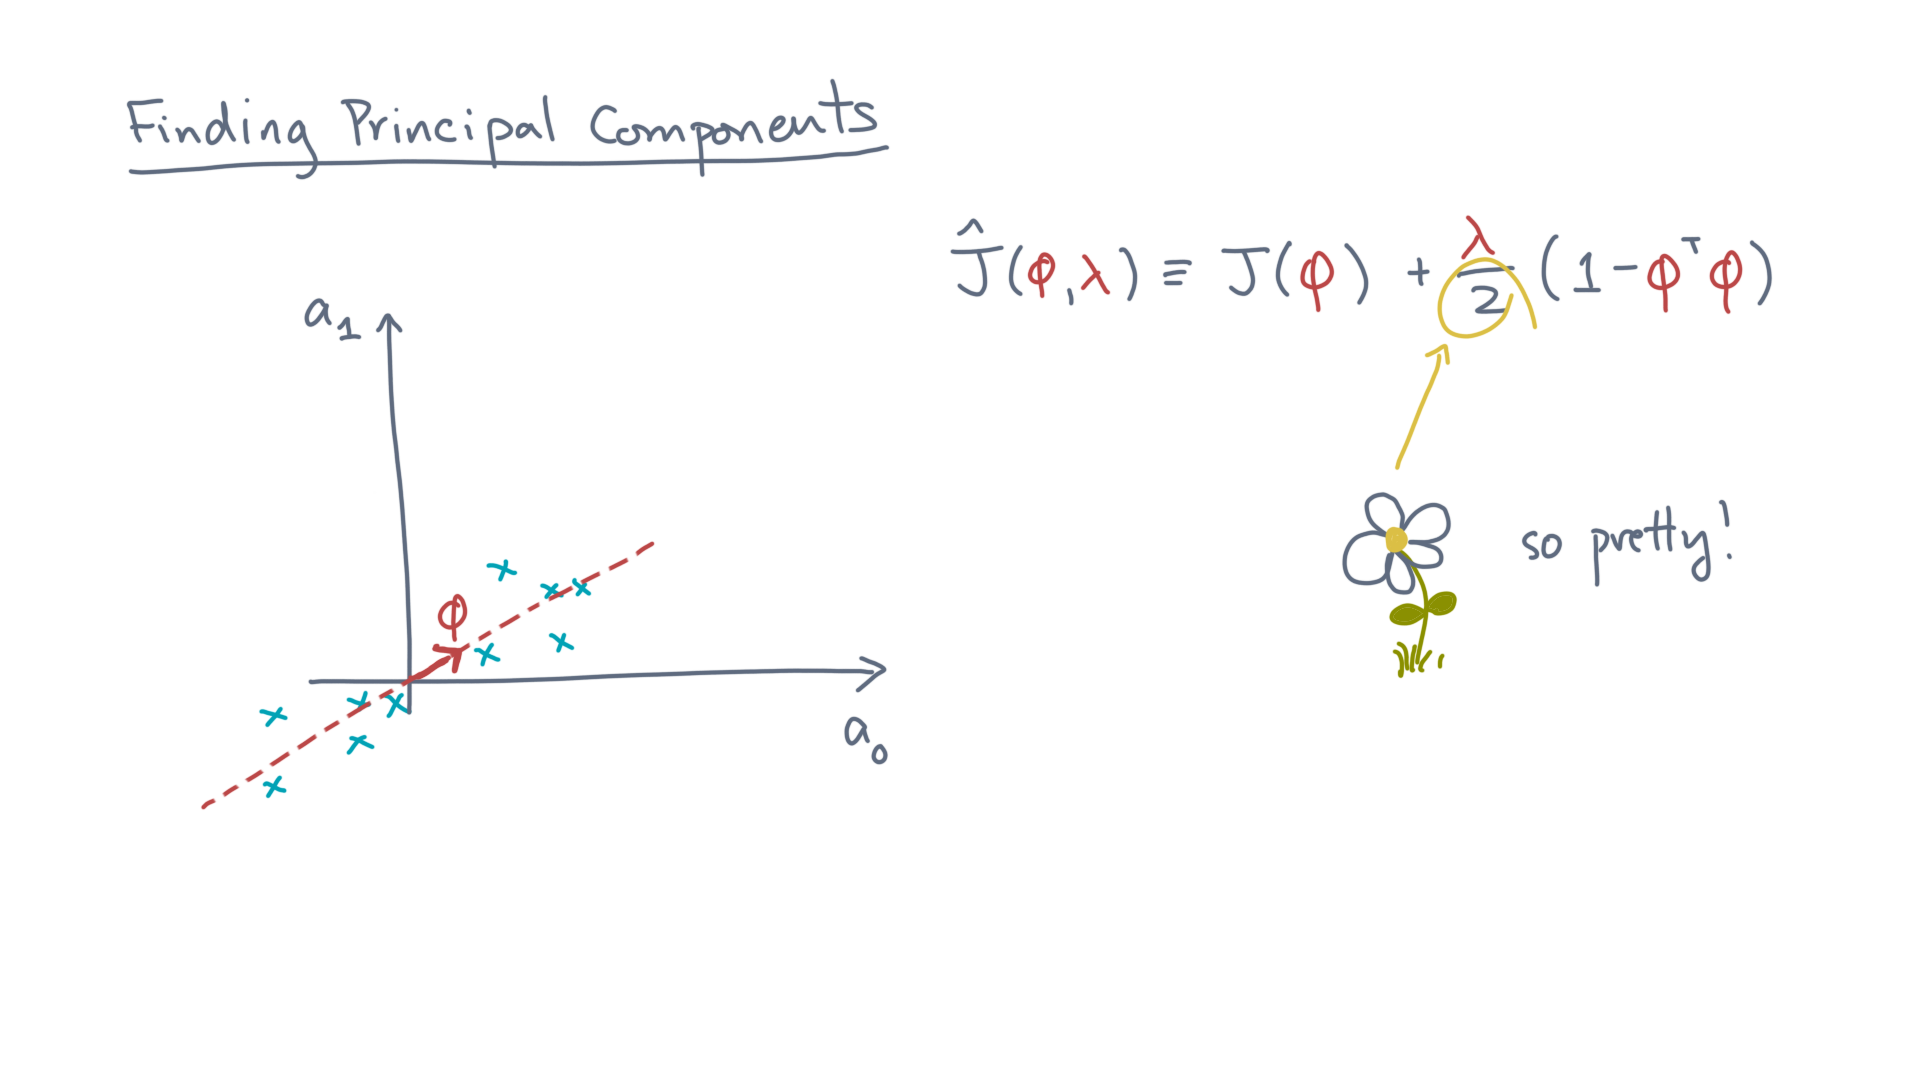 Finding Principal Components
Ĵ(φ,λ) ≡ J(φ) + λ/2 (1-φᵀφ)
a₁
φ
so pretty!
a₀